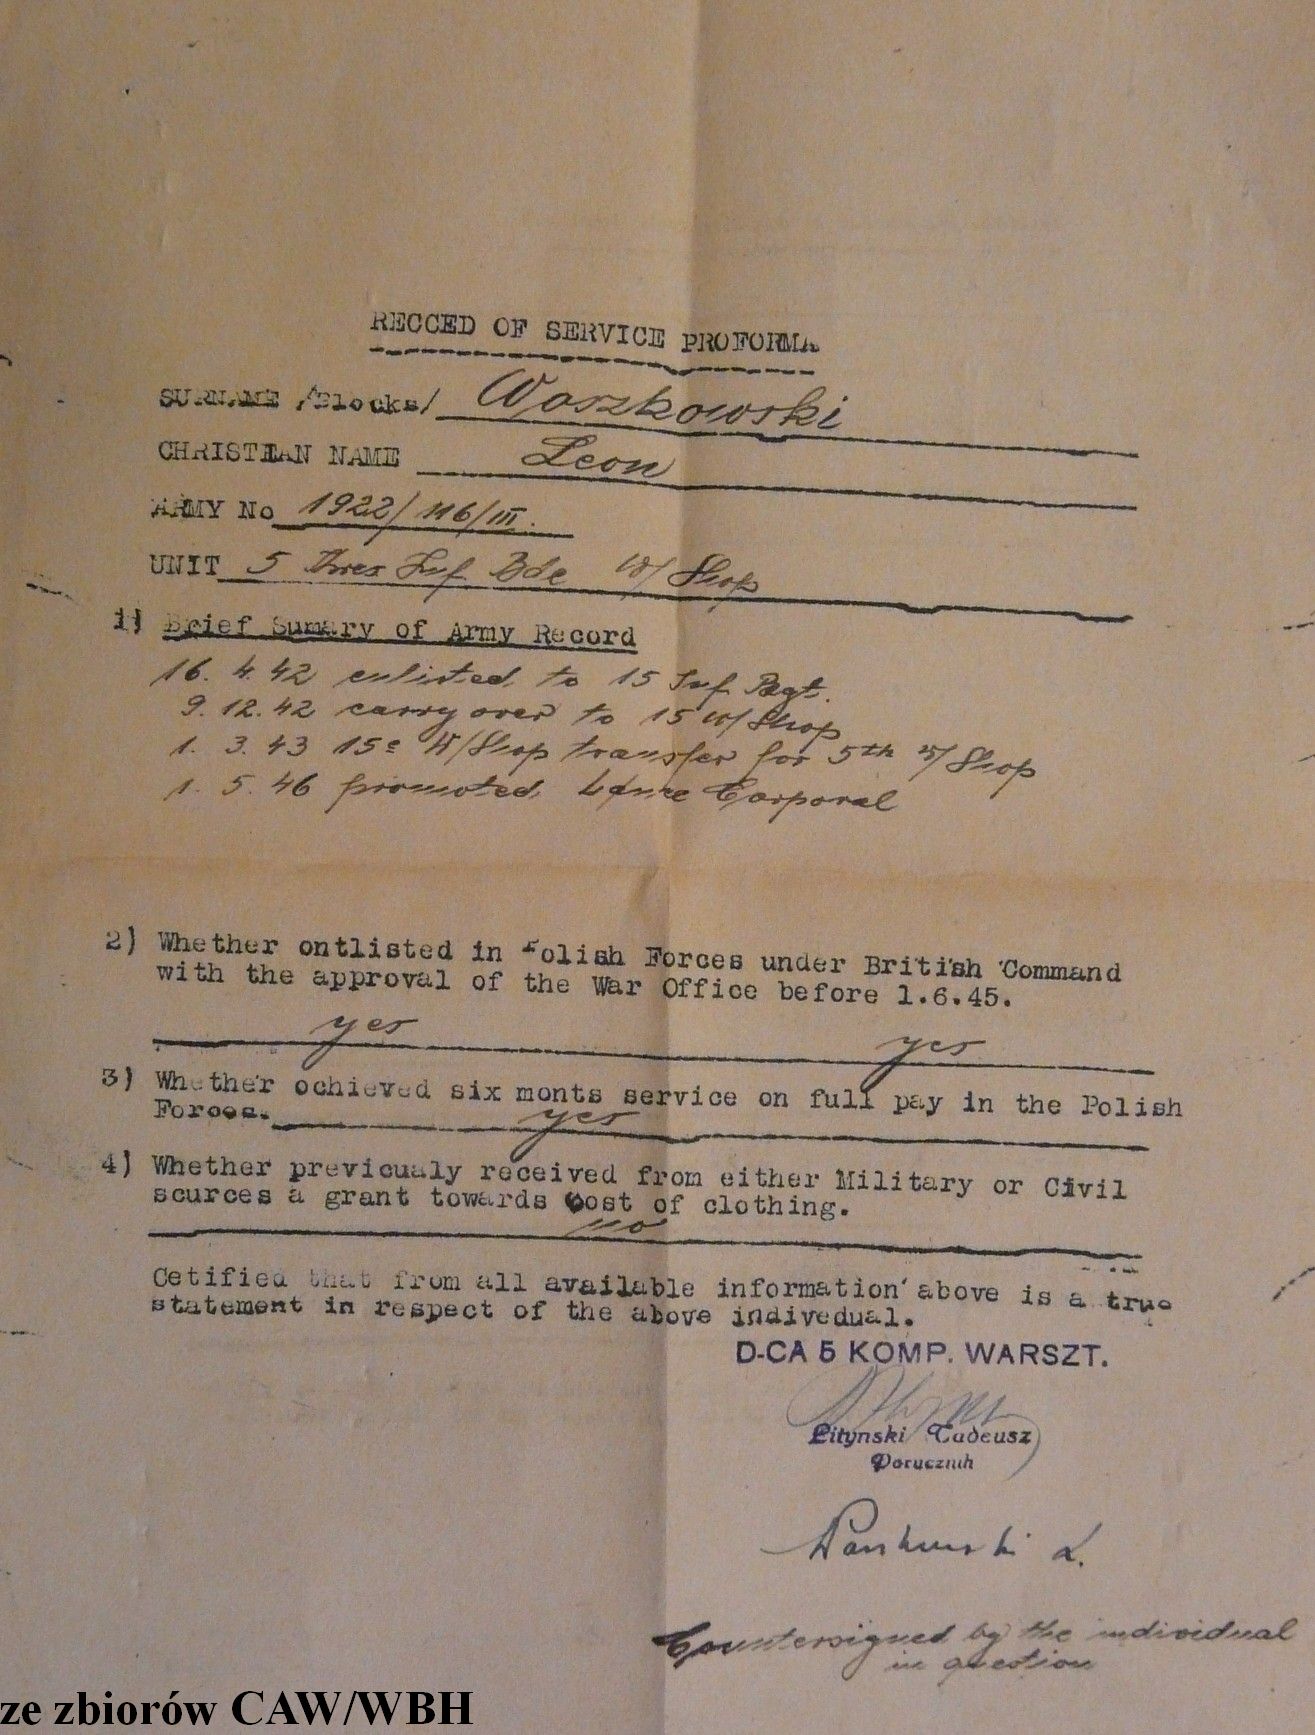 RECCED OF SERVICE PROFORMA
SURNAME /Blocks/ Woszkowski
CHRISTIAN NAME Leon
ARMY No 1922/116/III.
UNIT 5 Inf Bde W/Shop
1) Brief Sumary of Army Record
16. 4. 42 enlisted to 15 Inf. Regt.
9. 12. 42 carry over to 15 W/Shop
1. 3. 43 15e W/Shop transfer for 5th W/Shop
1. 5. 46 promoted Lance Corporal
2) Whether ontlisted in Polish Forces under British Command
with the approval of the War Office before 1.6.45.
yes yes
3) Whether ochieved six monts service on full pay in the Polish
Forces. yes
4) Whether previcualy received from either Military or Civil
scurces a grant towards cost of clothing.
no
Cetified that from all available information above is a true
statement in respect of the above indivedual.
D-CA 5 KOMP. WARSZT.
Litynski Tadeusz
Porucznik
L.
Countersigned by the individual
in question
ze zbiorów CAW/WBH